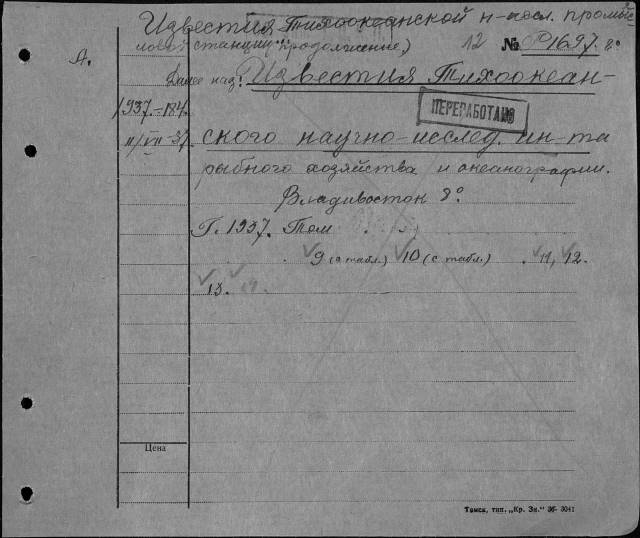 Известия Тихоокеанской н-посл. промыс-
ловой станции (продолжение,)
12 № Р1697. 8º
А.
Далее наз: Известия Тихоокеан-
ПЕРЕРАБОТАНО
1937.-184.
ского научно-исслед. ин-та
II/VII-37
рыбного хозяйства и океанографии.
Владивосток 8º
Г. 1937. Том
9 (с табл.) 10 (с табл.) 11, 12.
13.
Цена
Томск, тип. „Кр. Зн.“ 36- 3041